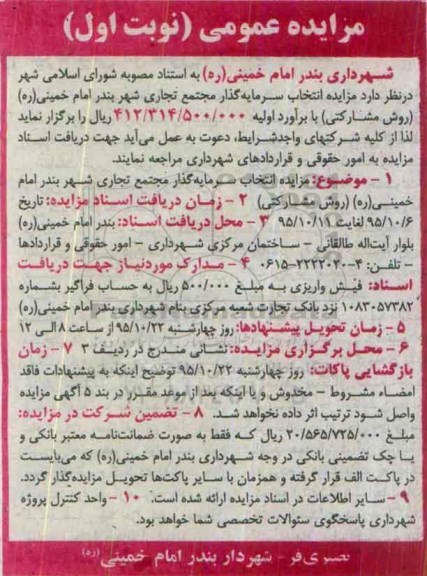 مزایده عمومی (نوبت اول)
شهرداری بندر امام خمینی(ره) به استناد مصوبه شورای اسلامی شهر
درنظر دارد مزایده انتخاب سرمایه‌گذار مجتمع تجاری شهر بندر امام خمینی(ره)
(روش مشارکتی) با برآورد اولیه ۴۱۲/۳۱۴/۵۰۰/۰۰۰ ریال را برگزار نماید
لذا از کلیه شرکتهای واجدشرایط، دعوت به عمل می‌آید جهت دریافت اسناد
مزایده به امور حقوقی و قراردادهای شهرداری مراجعه نمایند.
۱ - موضوع: مزایده انتخاب سرمایه‌گذار مجتمع تجاری شهر بندر امام
خمینی(ره) (روش مشارکتی) ۲ - زمان دریافت اسناد مزایده: تاریخ
۹۵/۱۰/۶ لغایت ۹۵/۱۰/۱۱ ۳ - محل دریافت اسناد: بندر امام خمینی(ره)
بلوار آیت‌اله طالقانی - ساختمان مرکزی شهرداری - امور حقوقی و قراردادها
- تلفن: ۴-۲۲۲۲۰۲۰-۰۶۱۵ ۴ - مدارک موردنیاز جهت دریافت
اسناد: فیش واریزی به مبلغ ۵۰۰/۰۰۰ ریال به حساب فراگیر بشماره
۱۰۸۳۰۵۷۳۸۲ نزد بانک تجارت شعبه مرکزی بنام شهرداری بندر امام خمینی(ره)
۵ - زمان تحویل پیشنهادها: روز چهارشنبه ۹۵/۱۰/۲۲ از ساعت ۸ الی ۱۲
۶ - محل برگزاری مزایده: نشانی مندرج در ردیف ۳ ۷ - زمان
بازگشایی پاکات: روز چهارشنبه ۹۵/۱۰/۲۲ توضیح اینکه به پیشنهادات فاقد
امضاء مشروط - مخدوش و یا اینکه بعد از موعد مقرر در بند ۵ آگهی مزایده
واصل شود ترتیب اثر داده نخواهد شد. ۸ - تضمین شرکت در مزایده:
مبلغ ۲۰/۵۶۵/۷۲۵/۰۰۰ ریال که فقط به صورت ضمانت‌نامه معتبر بانکی و
یا چک تضمینی بانکی در وجه شهرداری بندر امام خمینی(ره) که می‌بایست
در پاکت الف قرار گرفته و همزمان با سایر پاکت‌ها تحویل مزایده‌گذار گردد.
۹ - سایر اطلاعات در اسناد مزایده ارائه شده است. ۱۰ - واحد کنترل پروژه
شهرداری پاسخگوی سئوالات تخصصی شما خواهد بود.
نصیری‌فر - شهردار بندر امام خمینی (ره)